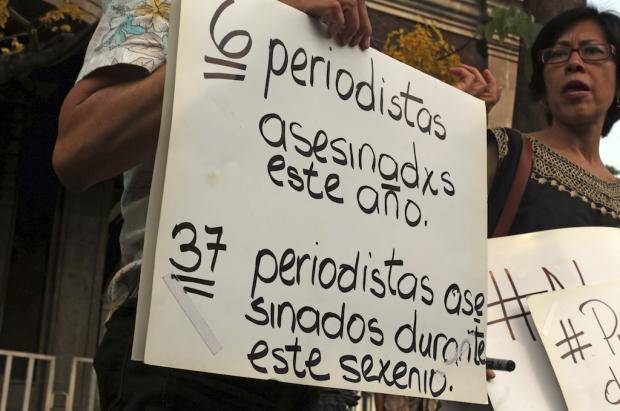 6 periodistas
asesinadxs
este año.
37 periodistas ase
sinados durante
este sexenio.
#N
#P
d